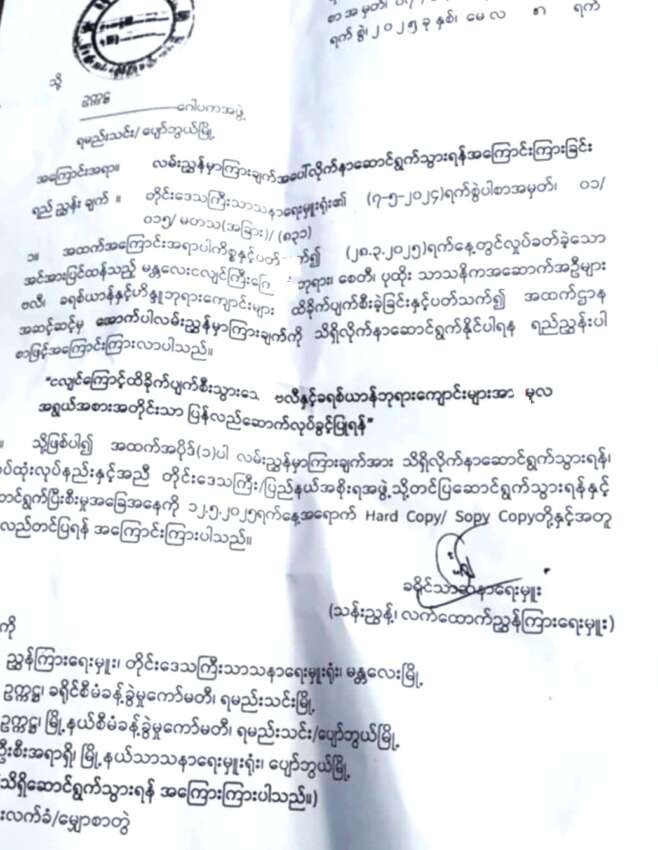 စာအမှတ်၊
ရက်စွဲ၊ ၂၀၂၅ ခုနှစ်၊ မေလ ရက်
သို့
ဥက္ကဋ္ဌ
ဂေါပကအဖွဲ့
ရမည်းသင်း/ပျော်ဘွယ်မြို့
အကြောင်းအရာ။ လမ်းညွှန်မှာကြားချက်အပေါ်လိုက်နာဆောင်ရွက်သွားရန်အကြောင်းကြားခြင်း
ရည်ညွှန်းချက် ။ တိုင်းဒေသကြီးသာသနာရေးမှူးရုံး၏ (၇-၅-၂၀၂၄)ရက်စွဲပါစာအမှတ်၊ ၀၁/
၀၁၅/ မတသ(အခြား)/ (၈၃၁)
၁။ အထက်အကြောင်းအရာပါကိစ္စနှင့်ပတ် ၍ (၂၈.၃.၂၀၂၅)ရက်နေ့တွင်လှုပ်ခတ်ခဲ့သော
အင်အားပြင်းထန်သည့် မန္တလေးငလျင်ကြီးကြော ဘုရား၊ စေတီ၊ ပုထိုး သာသနိကအဆောက်အဦများ
ဗလီ၊ ခရစ်ယာန်နှင့်ဟိန္ဒူဘုရားကျောင်းများ ထိခိုက်ပျက်စီးခဲ့ခြင်းနှင့်ပတ်သက်၍ အထက်ဌာန
အဆင့်ဆင့်မှ အောက်ပါလမ်းညွှန်မှာကြားချက်ကို သိရှိလိုက်နာဆောင်ရွက်နိုင်ပါရန ရည်ညွှန်းပါ
စာဖြင့်အကြောင်းကြားလာပါသည်။
"ငလျင်ကြောင့်ထိခိုက်ပျက်စီးသွားသော ဗလီနှင့်ခရစ်ယာန်ဘုရားကျောင်းများအား မူလ
အရွယ်အစားအတိုင်းသာ ပြန်လည်ဆောက်လုပ်ခွင့်ပြုရန်"
။ သို့ဖြစ်ပါ၍ အထက်အပိုဒ်(၁)ပါ လမ်းညွှန်မှာကြားချက်အား သိရှိလိုက်နာဆောင်ရွက်သွားရန်၊
ပ်ထုံးလုပ်နည်းနှင့်အညီ တိုင်းဒေသကြီး/ပြည်နယ်အစိုးရအဖွဲ့သို့တင်ပြဆောင်ရွက်သွားရန်နှင့်
တင်ရွက်ပြီးစီးမှုအခြေအနေကို ၁၂.၅.၂၀၂၅ရက်နေ့အရောက် Hard Copy/ Sopy Copyတို့နှင့်အတူ
လည်တင်ပြရန် အကြောင်းကြားပါသည်။
ခရိုင်သာသနာရေးမှူး
(သန်းညွန့်၊ လက်ထောက်ညွှန်ကြားရေးမှူး)
ကို
ညွှန်ကြားရေးမှူး၊ တိုင်းဒေသကြီးသာသနာရေးမှူးရုံး၊ မန္တလေးမြို့
ဥက္ကဋ္ဌ၊ ခရိုင်စီမံခန့်ခွဲမှုကော်မတီ၊ ရမည်းသင်းမြို့
ဥက္ကဋ္ဌ၊ မြို့နယ်စီမံခန့်ခွဲမှုကော်မတီ၊ ရမည်းသင်း/ပျော်ဘွယ်မြို့
ဦးစီးအရာရှိ၊ မြို့နယ်သာသနာရေးမှူးရုံး၊ ပျော်ဘွယ်မြို့
သိရှိဆောင်ရွက်သွားရန် အကြောကြားပါသည်။)
းလက်ခံ/မျှောစာတွဲ